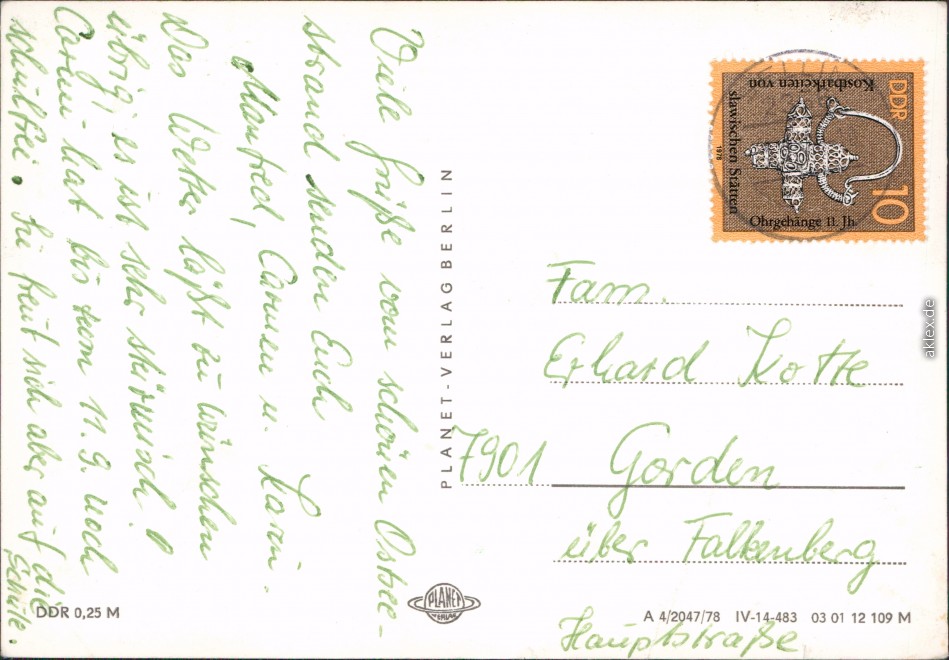 Viele Grüße vom schönen Ostsee-
strand senden Euch
Manfred, Carmen u.
Das Wetter läßt zu wünschen
übrig, es ist sehr stürmisch!
Carmen hat bis zum 11.9. noch
schulfrei. Sie freut sich aber auf die
Schule.
PLANET-VERLAG BERLIN
DDR
10
Kostbarkeiten von
slawischen Stätten
1978
Ohrgehänge 11. Jh.
Fam.
Erhard Kotte
7901 Gorden
über Falkenberg
Hauptstraße
DDR 0,25 M
PLANET
VERLAG
A 4/2047/78 IV-14-483 03 01 12 109 M
aklex.de